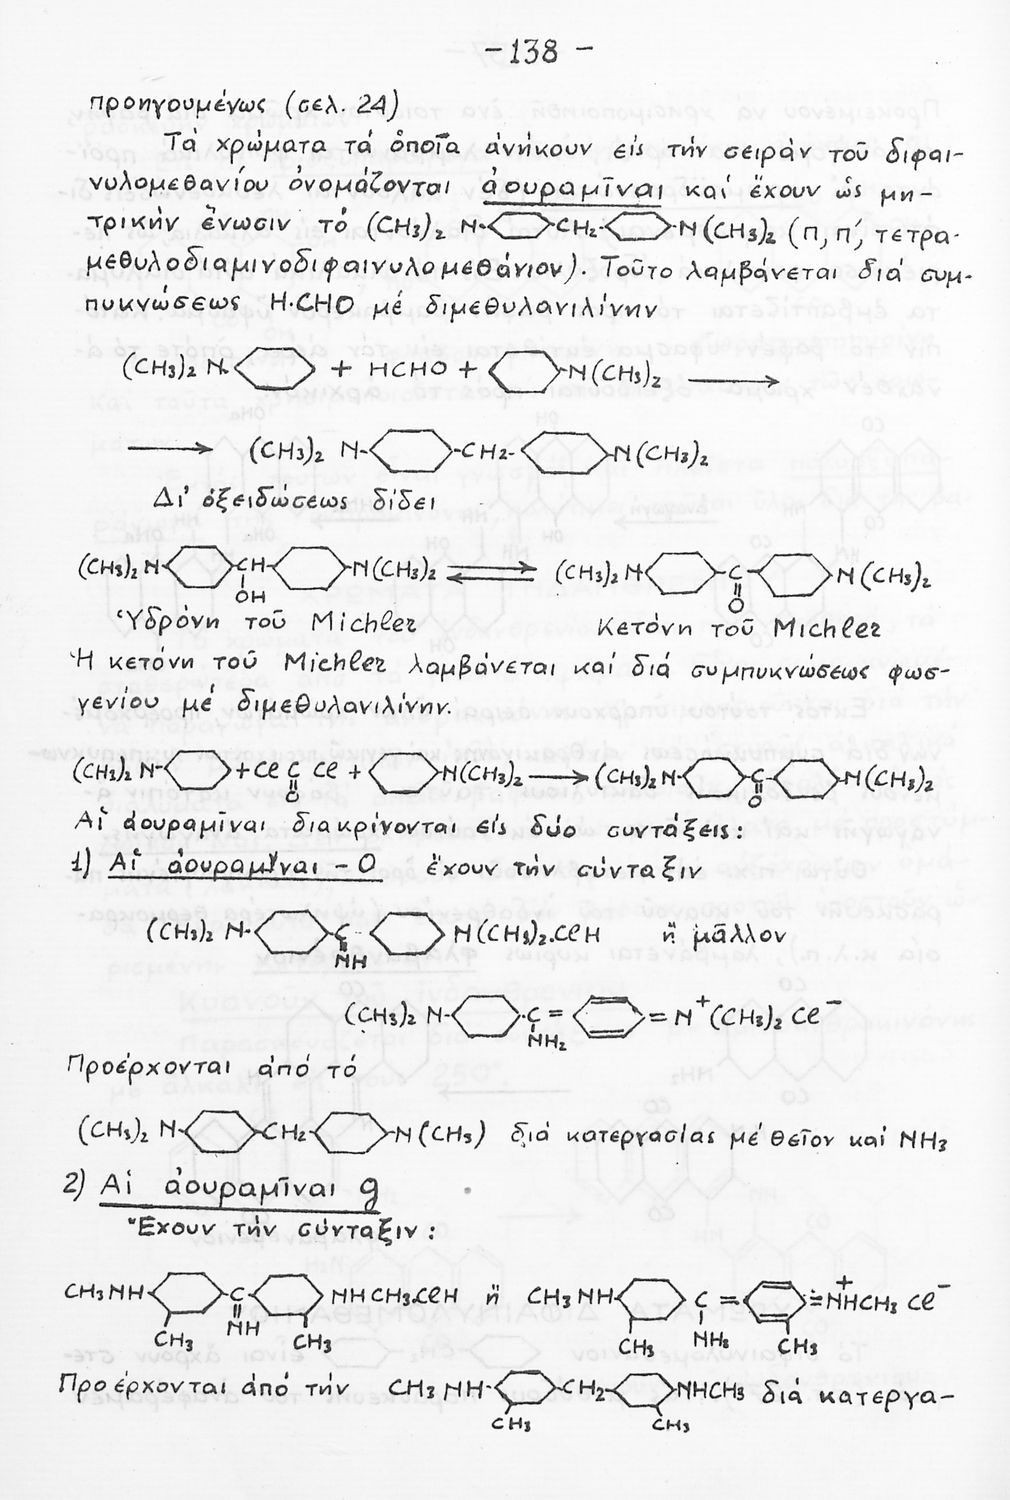 -138 -
προηγουμένως (σελ. 24)
Τά χρώματα τά ὁποῖα ἀνήκουν εἰς τήν σειράν τοῦ διφαι-
νυλομεθανίου ὀνομάζονται ἀουραμῖναι καί ἔχουν ὡς μη-
τρικήν ἕνωσιν τό (CH3)2 N- -CH2- -N(CH3)2 (π, π', τετρα-
μεθυλοδιαμινοδιφαινυλομεθάνιον). Τοῦτο λαμβάνεται διά συμ-
πυκνώσεως H·CHO μέ διμεθυλανιλίνην
(CH3)2 N- + HCHO + -N(CH3)2 ⟶
⟶ (CH3)2 N- -CH2- -N(CH3)2
Δι' ὀξειδώσεως δίδει
(CH3)2 N- -CH- -N(CH3)2 ⇌ (CH3)2 N- -C- -N(CH3)2
OH O
Ὑδρόνη τοῦ Michler Κετόνη τοῦ Michler
Ἡ κετόνη τοῦ Michler λαμβάνεται καί διά συμπυκνώσεως φωσ-
γενίου μέ διμεθυλανιλίνην.
(CH3)2 N- + Cl C Cl + -N(CH3)2 ⟶ (CH3)2 N- -C- -N(CH3)2
O O
Αἱ ἀουραμῖναι διακρίνονται εἰς δύο συντάξεις:
1) Αἱ ἀουραμῖναι - O ἔχουν τήν σύνταξιν
(CH3)2 N- -C- N(CH3)2.ClH ἤ μᾶλλον
NH
(CH3)2 N- -C = = N+(CH3)2 Cl-
NH2
Προέρχονται ἀπό τό
(CH3)2 N- -CH2- -N(CH3) διά κατεργασίας μέ θεῖον καί NH3
2) Αἱ ἀουραμῖναι g
Ἔχουν τήν σύνταξιν:
CH3NH- -C- NHCH3.ClH ἤ CH3NH- C = = NHCH3 Cl-
+
CH3 NH CH3 CH3 NH2 CH3
Προέρχονται ἀπό τήν CH3 NH- -CH2- -NHCH3 διά κατεργα-
CH3 CH3